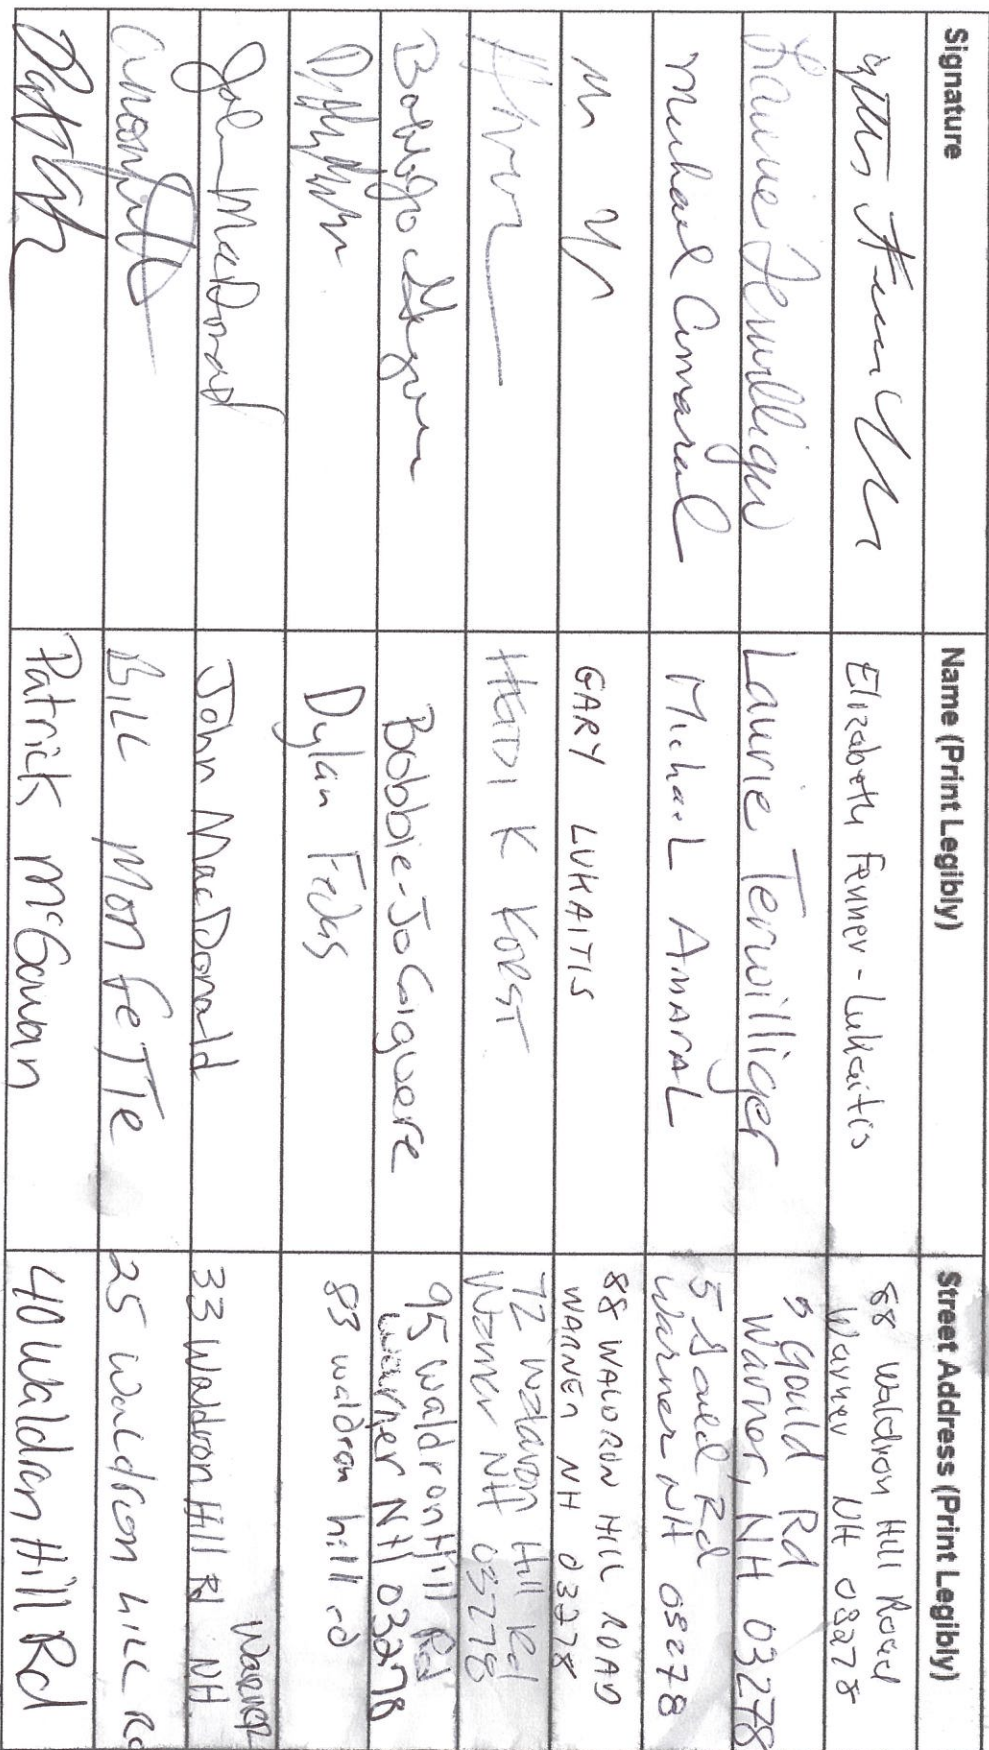 Signature Name (Print Legibly) Street Address (Print Legibly)
Elizabeth Fenner-Lukaitis 88 Waldron Hill Road
Warner NH 03278
Laurie Terwilliger Laurie Terwilliger 5 Gould Rd
Warner, NH 03278
Michael Amaral Michael Amaral 5 Gould Rd
Warner NH 03278
GARY LUKAITIS 88 WALDRON HILL ROAD
WARNER NH 03278
HEIDI K KORST 72 Waldron Hill Rd
Warner NH 03278
Bobbie-Jo Giguere 95 Waldron Hill Rd
Warner NH 03278
Dylan 83 waldron hill rd
John MacDonald John MacDonald 33 Waldron Hill Rd Warner
NH.
BILL MonfeTTe 25 waldron hill Rd
Patrick McGowan 40 Waldron Hill Rd